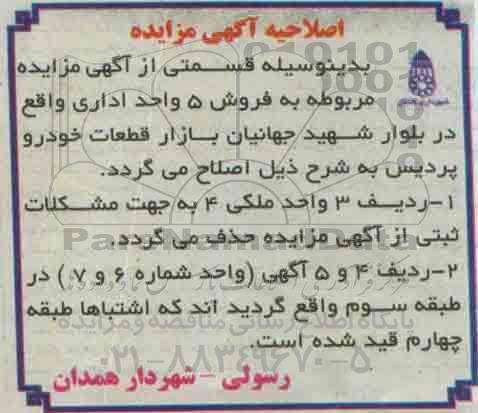 اصلاحیه آگهی مزایده
بدینوسیله قسمتی از آگهی مزایده
مربوطه به فروش ۵ واحد اداری واقع
در بلوار شهید جهانیان بازار قطعات خودرو
پردیس به شرح ذیل اصلاح می گردد.
۱-ردیف ۳ واحد ملکی ۴ به جهت مشکلات
ثبتی از آگهی مزایده حذف می گردد.
۲-ردیف ۴ و ۵ آگهی (واحد شماره ۶ و ۷) در
طبقه سوم واقع گردید اند که اشتباها طبقه
چهارم قید شده است.
رسولی - شهردار همدان
ParsNamadData
پایگاه اطلاع رسانی مناقصه و مزایده
۰۲۱-۸۸۳۴۹۶۷۰-۵